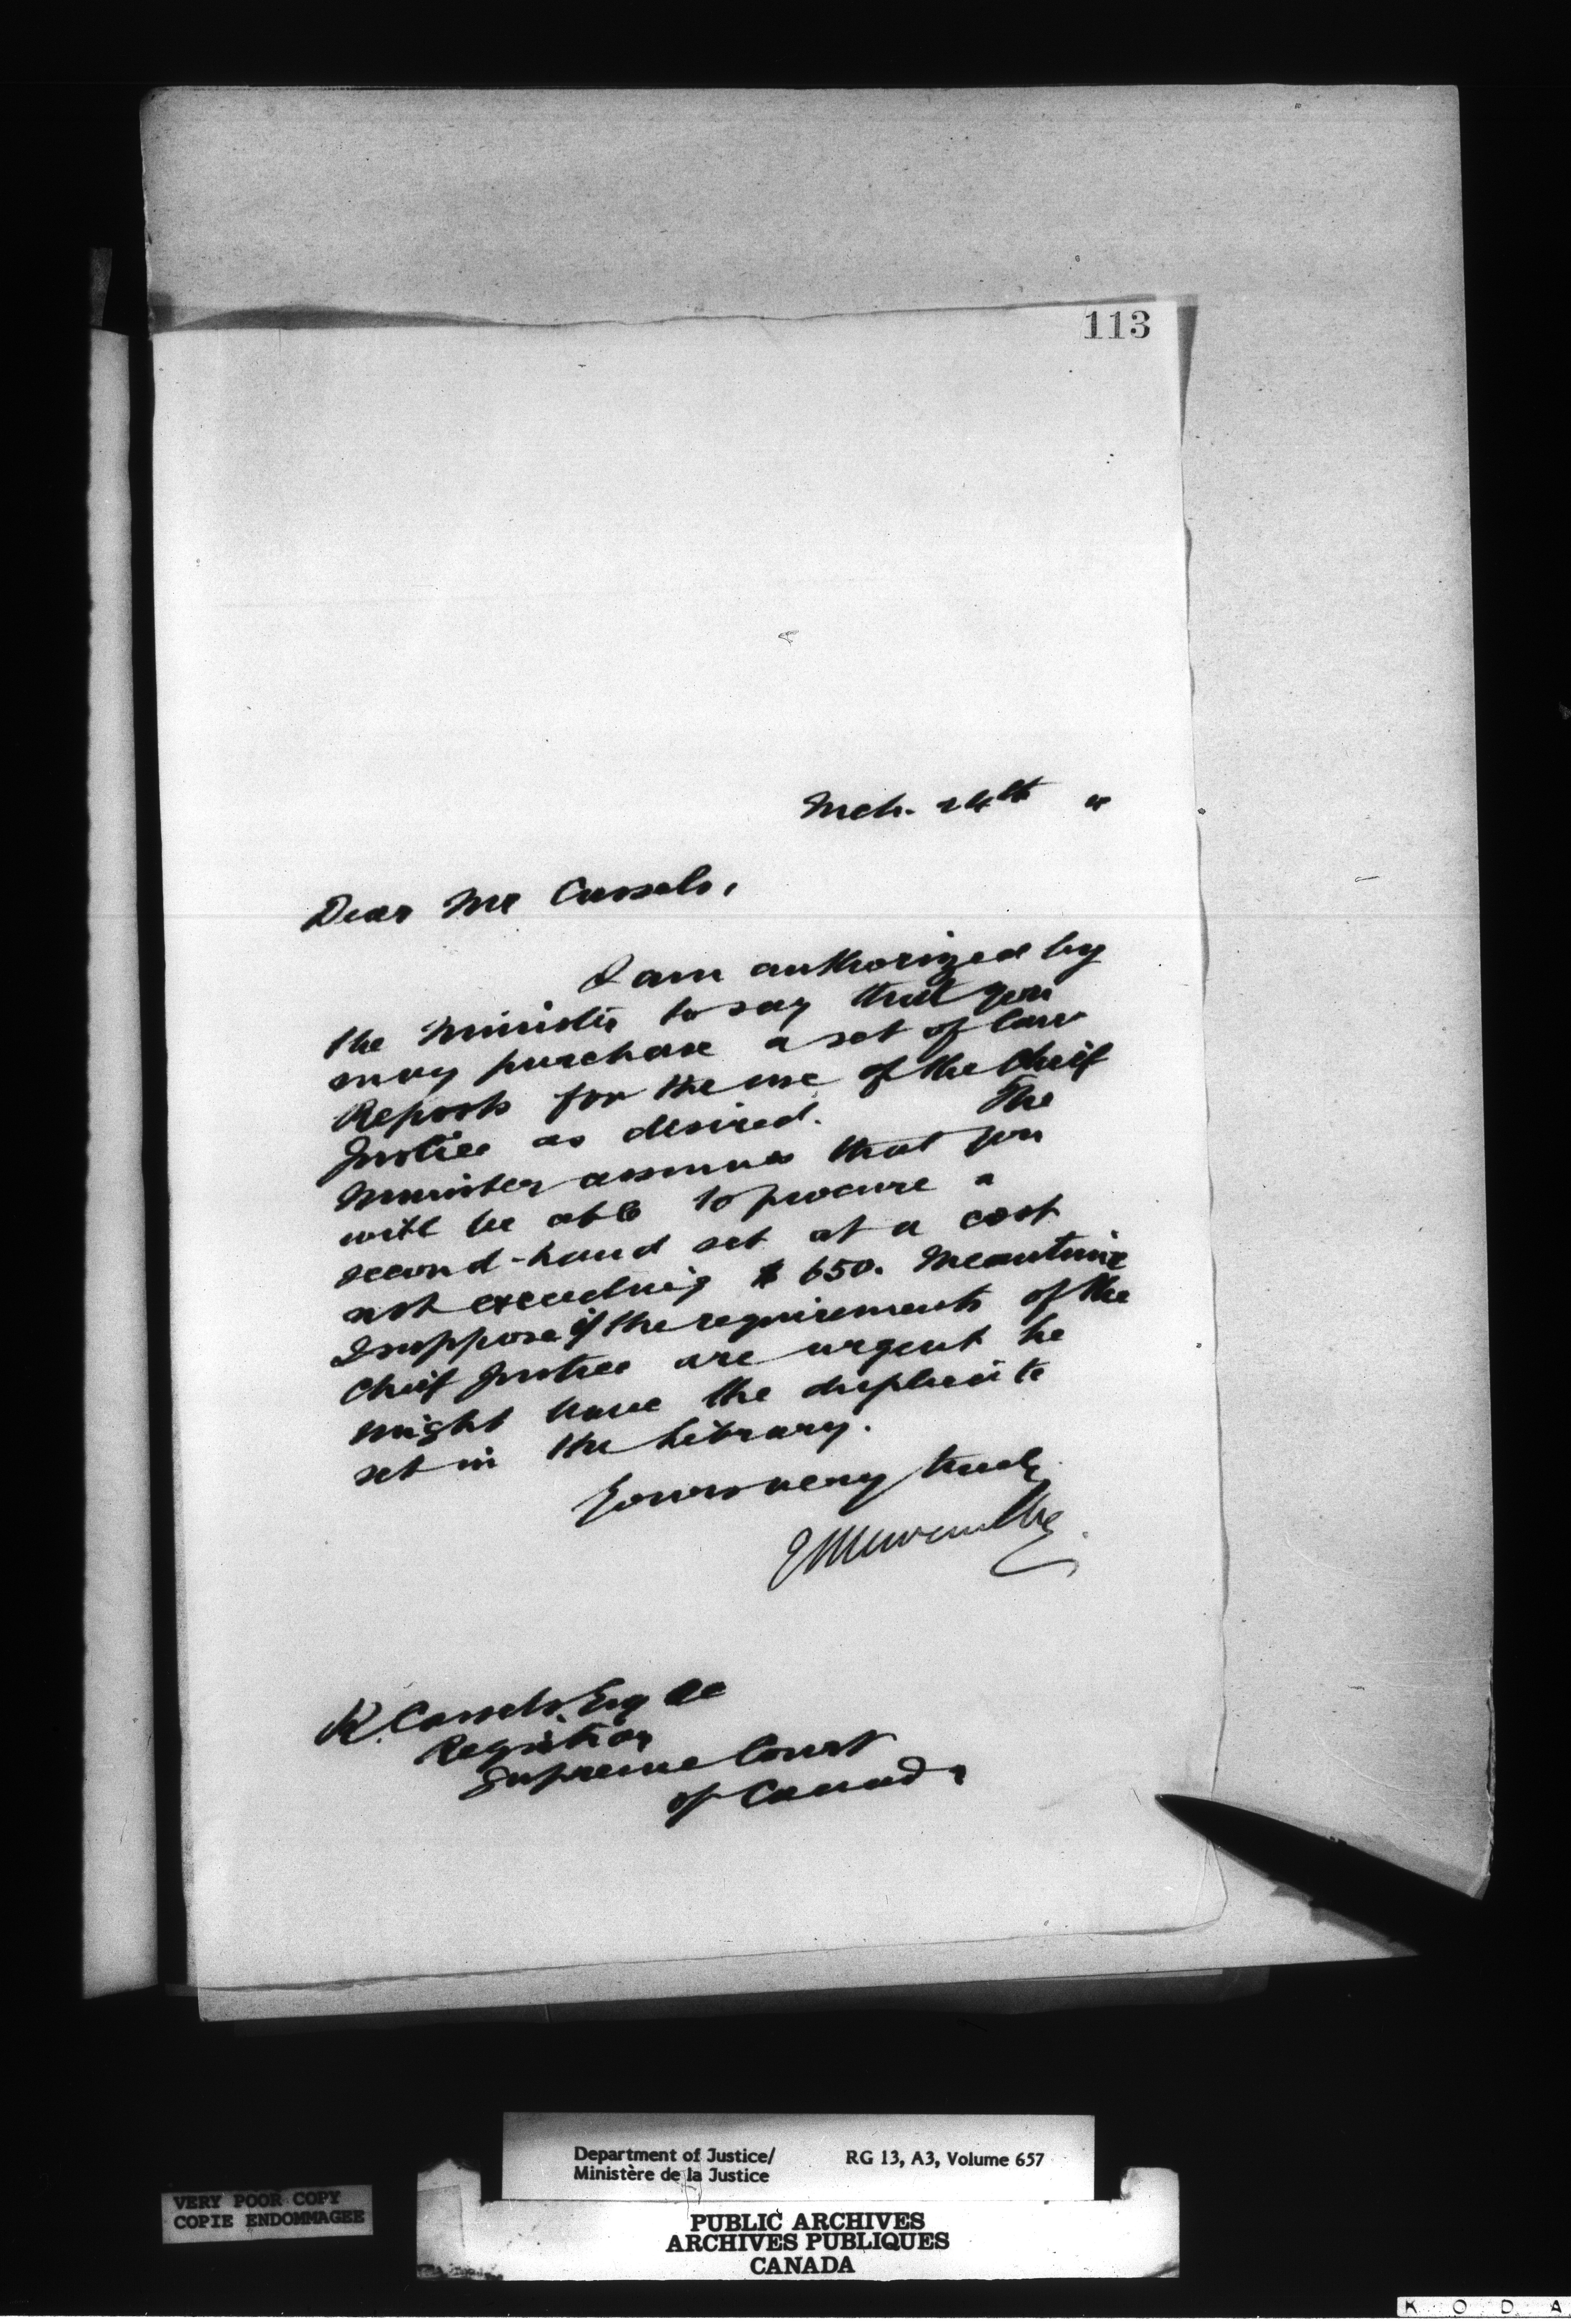 113
Mch. 24th "
Dear Mr Cassels,
I am authorized by
the Minister to say that you
may purchase a set of Law
Reports for the use of the Chief
Justice as desired. The
Minister assumes that you
will be able to procure a
second-hand set at a cost
not exceeding $ 650. Meantime
I suppose if the requirements of the
Chief Justice are urgent he
might have the duplicate
set in the Library.
Yours very truly
R. Cassels, Esq QC
Registrar
Supreme Court
of Canada
Department of Justice/ RG 13, A3, Volume 657
Ministère de la Justice
VERY POOR COPY
COPIE ENDOMMAGEE
PUBLIC ARCHIVES
ARCHIVES PUBLIQUES
CANADA
K O D A